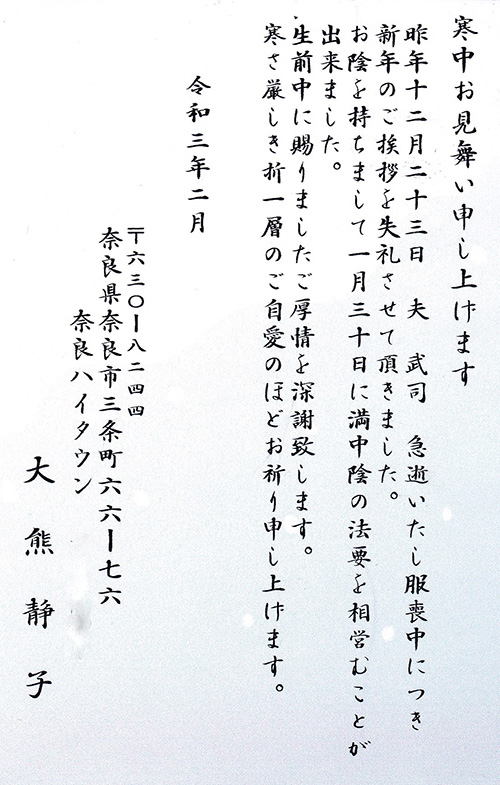 寒中お見舞い申し上げます
昨年十二月二十三日　夫　武司　急逝いたし服喪中につき
新年のご挨拶を失礼させて頂きました。
お陰を持ちまして一月三十日に満中陰の法要を相営むことが
出来ました。
生前中に賜りましたご厚情を深謝致します。
寒さ厳しき折一層のご自愛のほどお祈り申し上げます。
令和三年二月
〒六三〇ー八二四四
奈良県奈良市三条町六六ー七六
奈良ハイタウン
大熊静子